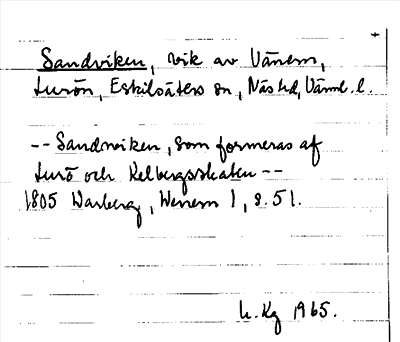 Sandviken, vik av Vänern,
Lurön, Eskilsäters sn, Näs hd, Värml. l.
-- Sandwiken, som formeras af
Lurö och Kelbergsskaten --
1805 Warberg, Wenern 1, s. 51.
L. Kg 1965.